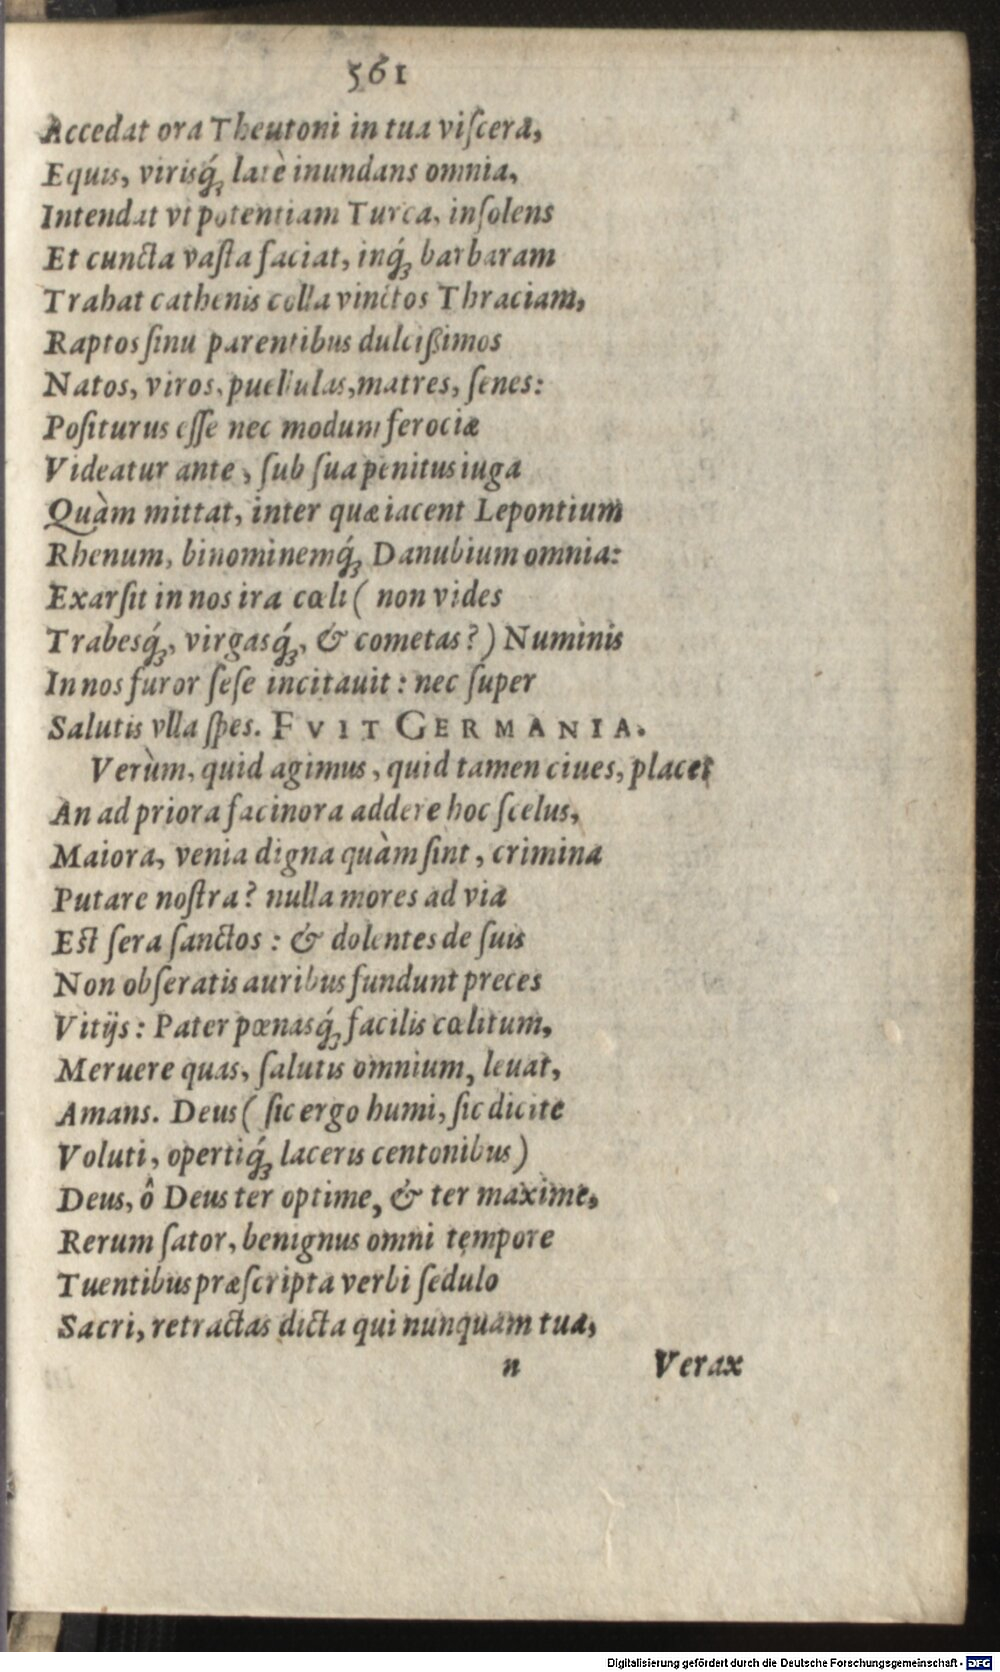 561
Accedat ora Theutoni in tua viſcera,
Equis, virisq́ꝫ latè inundans omnia,
Intendat vt potentiam Turca, inſolens
Et cuncta vaſta faciat, inq́ꝫ barbaram
Trahat cathenis colla vinctos Thraciam,
Raptos ſinu parentibus dulcißimos
Natos, viros, puellulas, matres, ſenes:
Poſiturus eſſe nec modum ferociæ
Videatur ante, ſub ſua penitus iuga
Quàm mittat, inter quæ iacent Lepontium
Rhenum, binominemq́ꝫ Danubium omnia:
Exarſit in nos ira cœli ( non vides
Trabesq́ꝫ, virgasq́ꝫ, & cometas? ) Numinis
In nos furor ſeſe incitauit : nec ſuper
Salutis vlla ſpes. FVIT GERMANIA.
Verùm, quid agimus, quid tamen ciues, placet
An ad priora facinora addere hoc ſcelus,
Maiora, venia digna quàm ſint, crimina
Putare noſtra? nulla mores ad via
Eſt ſera ſanctos : & dolentes de ſuis
Non obſeratis auribus fundunt preces
Vitijs : Pater pœnasq́ꝫ facilis cœlitum,
Meruere quas, ſalutis omnium, leuat,
Amans. Deus ( ſic ergo humi, ſic dicite
Voluti, opertiq́ꝫ laceris centonibus )
Deus, ô Deus ter optime, & ter maxime,
Rerum ſator, benignus omni tempore
Tuentibus præſcripta verbi ſedulo
Sacri, retractas dicta qui nunquam tua,
n Verax
Digitalisierung gefördert durch die Deutsche Forschungsgemeinschaft - DFG